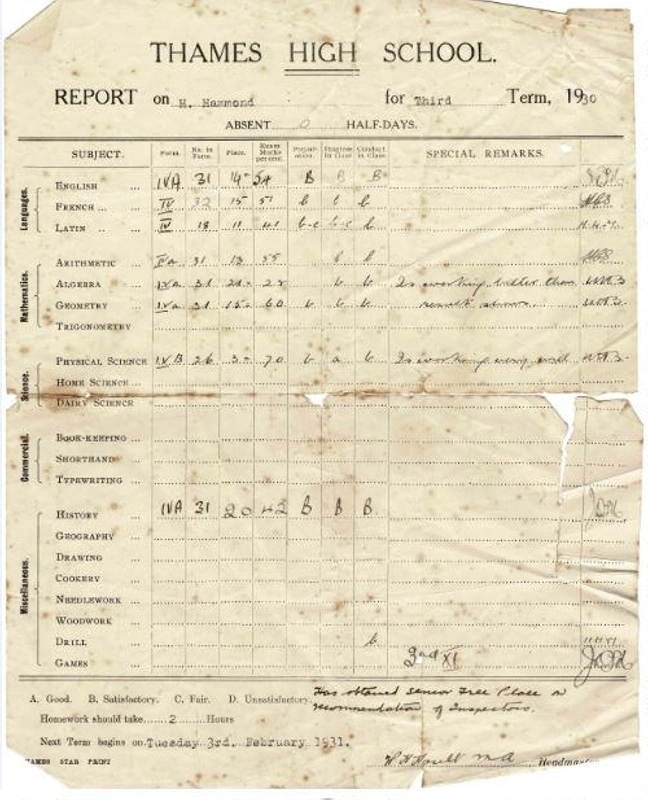 THAMES HIGH SCHOOL.
REPORT on H. Hammond for Third Term, 1930
ABSENT 0 HALF-DAYS.
SUBJECT. Form. No. in Form. Place. Exam Marks per cent. Progress in Class Conduct in Class. SPECIAL REMARKS.
Languages.
ENGLISH ... IVA 31 14= 54 B B B
FRENCH ... IV 32 15 51 b b b
LATIN .. IV 18 11 41 b-c b-c b
Mathematics.
ARITHMETIC ... IVa 31 13 55 b b
ALGEBRA ... IVa 31 b b Is working better than
GEOMETRY ... IVa 31 15= 60 b b b results shows.
TRIGONOMETRY
Science.
PHYSICAL SCIENCE IVB 26 3= 70 b a b Is working very well
HOME SCIENCE ...
DAIRY SCIENCE
Commercial.
BOOK-KEEPING ...
SHORTHAND ...
TYPEWRITING ...
Miscellaneous.
HISTORY ... IVA 31 20 42 B B B
GEOGRAPHY ...
DRAWING ...
COOKERY ...
NEEDLEWORK ...
WOODWORK ...
DRILL ... b
GAMES ... 3rd XI
A. Good. B. Satisfactory. C. Fair. D. Unsatisfactory. Has obtained Senior Free Place on
Homework should take 2 Hours recommendation of Inspectors.
Next Term begins on Tuesday 3rd. February 1931.
STAR PRINT M A